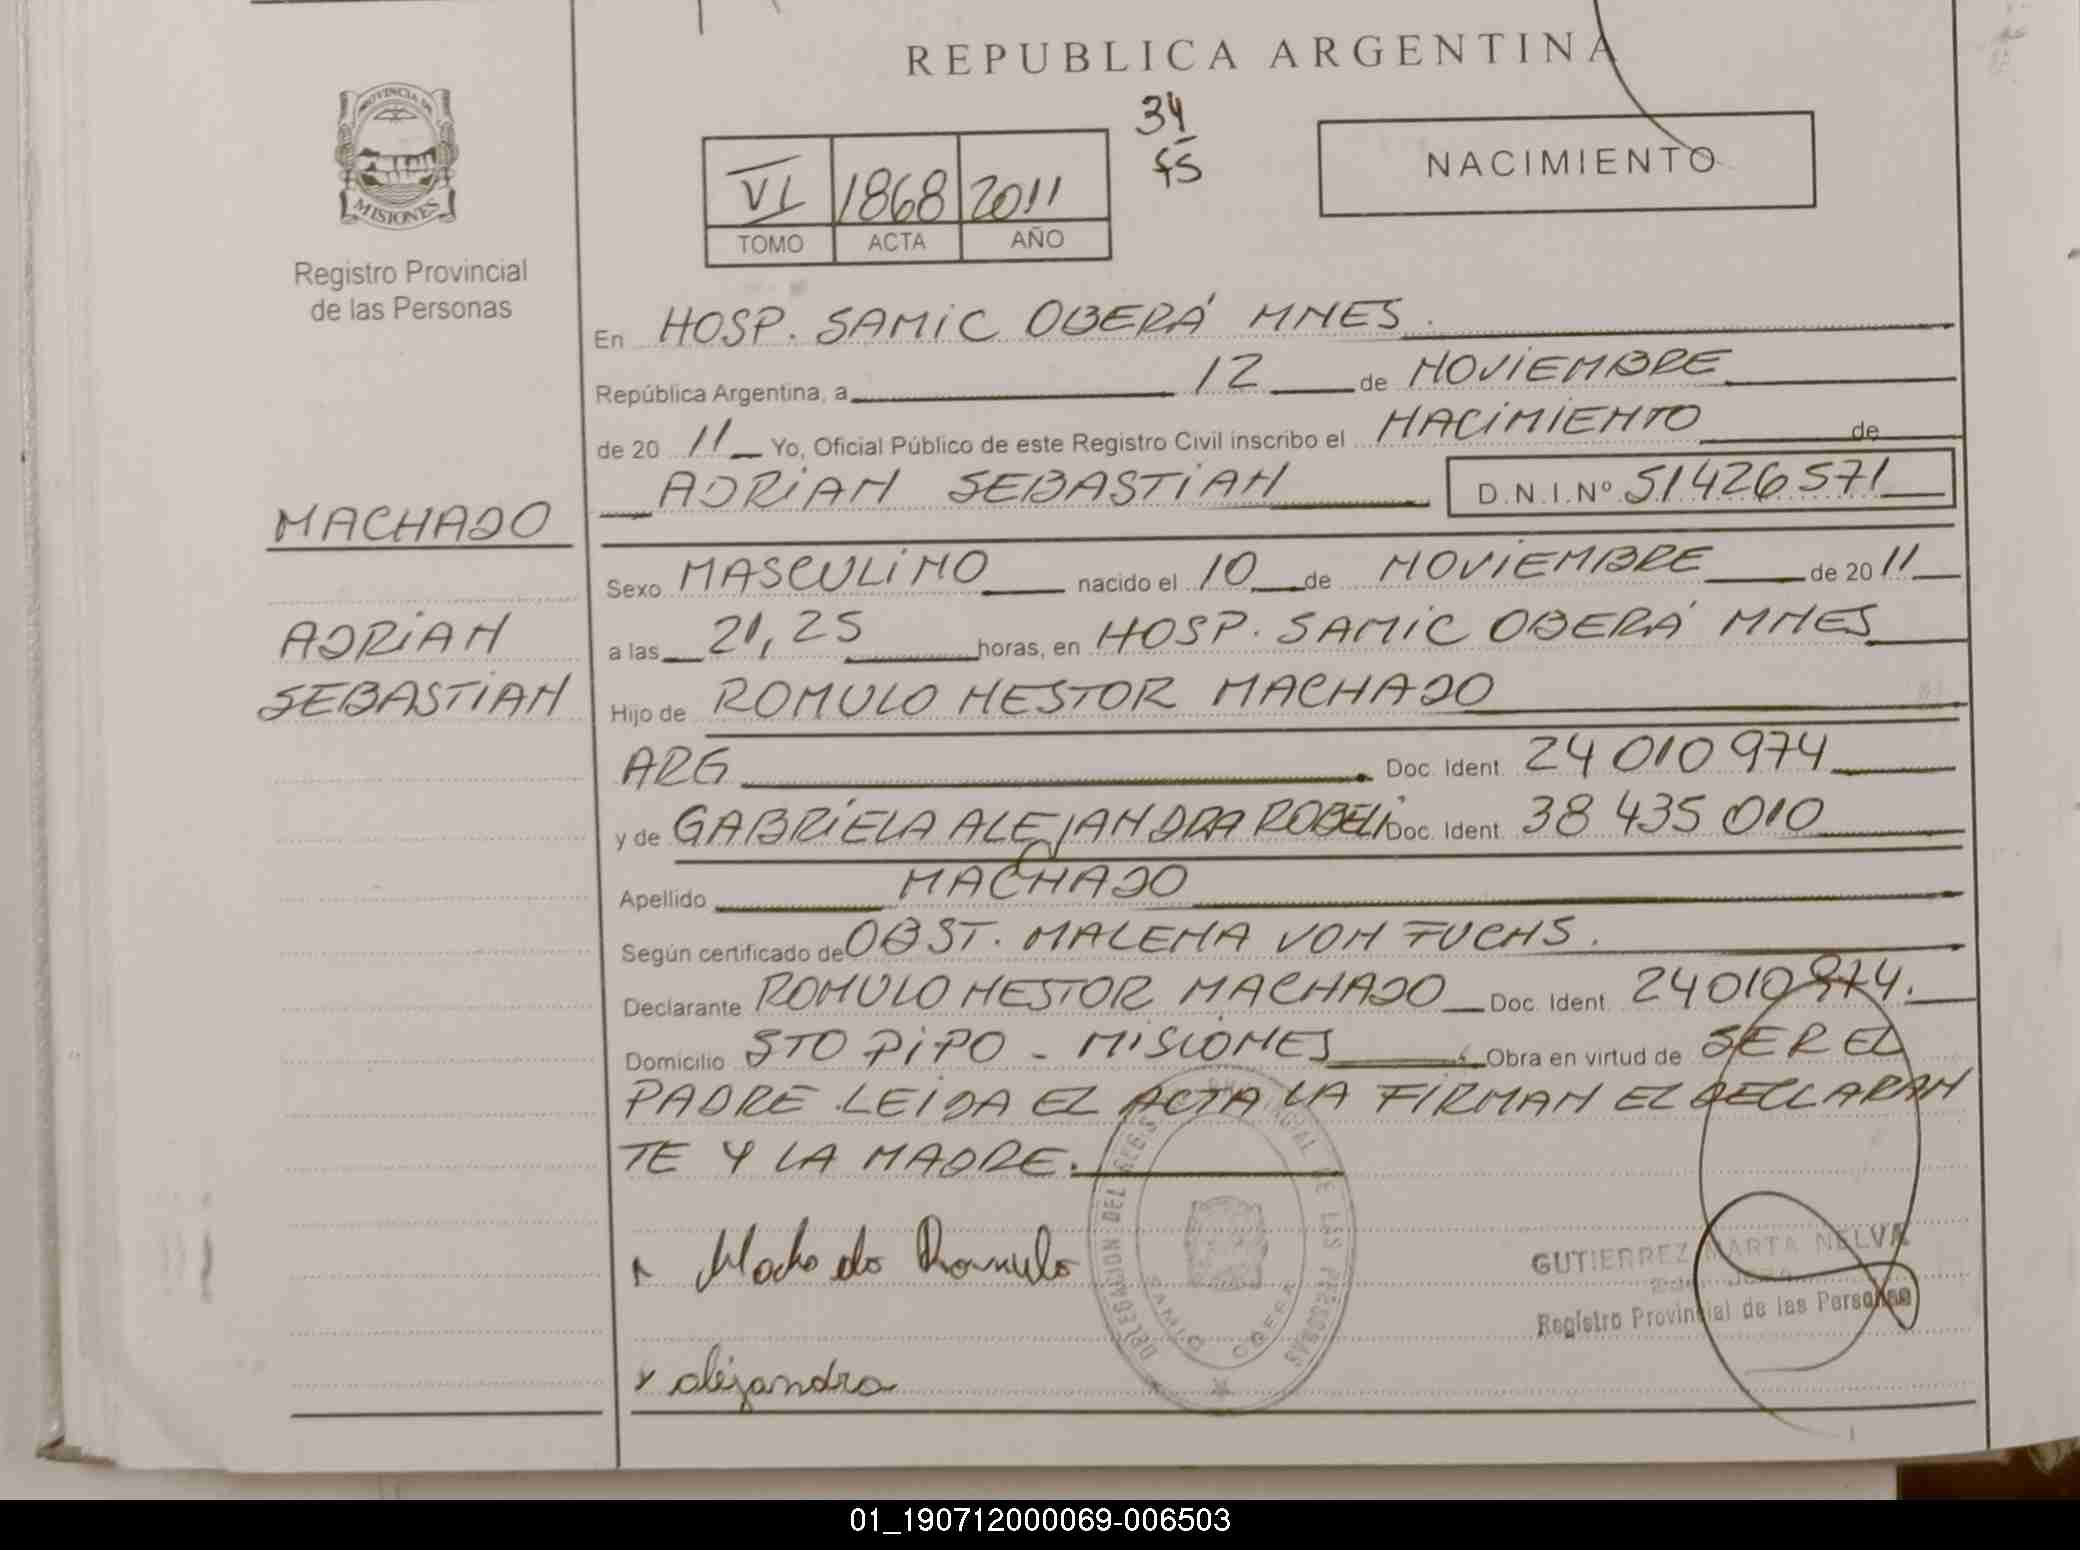 REPUBLICA ARGENTINA
PROVINCIA DE
MISIONES
Registro Provincial
de las Personas
34
fs
VI 1868 2011
TOMO ACTA AÑO
NACIMIENTO
En HOSP. SAMIC OBERÁ MNES.
República Argentina, a 12 de NOVIEMBRE
de 20 11 Yo, Oficial Público de este Registro Civil inscribo el NACIMIENTO de
ADRIAN SEBASTIAN D.N.I.Nº 51426571
MACHADO
ADRIAN
SEBASTIAN
Sexo MASCULINO nacido el 10 de NOVIEMBRE de 20 11
a las 21,25 horas, en HOSP. SAMIC OBERÁ MNES
Hijo de ROMULO NESTOR MACHADO
ARG Doc. Ident. 24 010 974
y de GABRIELA ALEJANDRA ROBELI Doc. Ident. 38 435 010
Apellido MACHADO
Según certificado de OBST. MALENA VON FUCHS.
Declarante ROMULO NESTOR MACHADO Doc. Ident. 24010974.
Domicilio STO PIPO - MISIONES Obra en virtud de SER EL
PADRE LEIDA EL ACTA LA FIRMAN EL DECLARAN
TE Y LA MADRE.
Machado Romulo
alejandra
DELEGACION DEL REGISTRO PROVINCIAL DE LAS PERSONAS
SAMIC OBERA
GUTIERREZ MARTA NELVA
Registro Provincial de las Personas
01_190712000069-006503